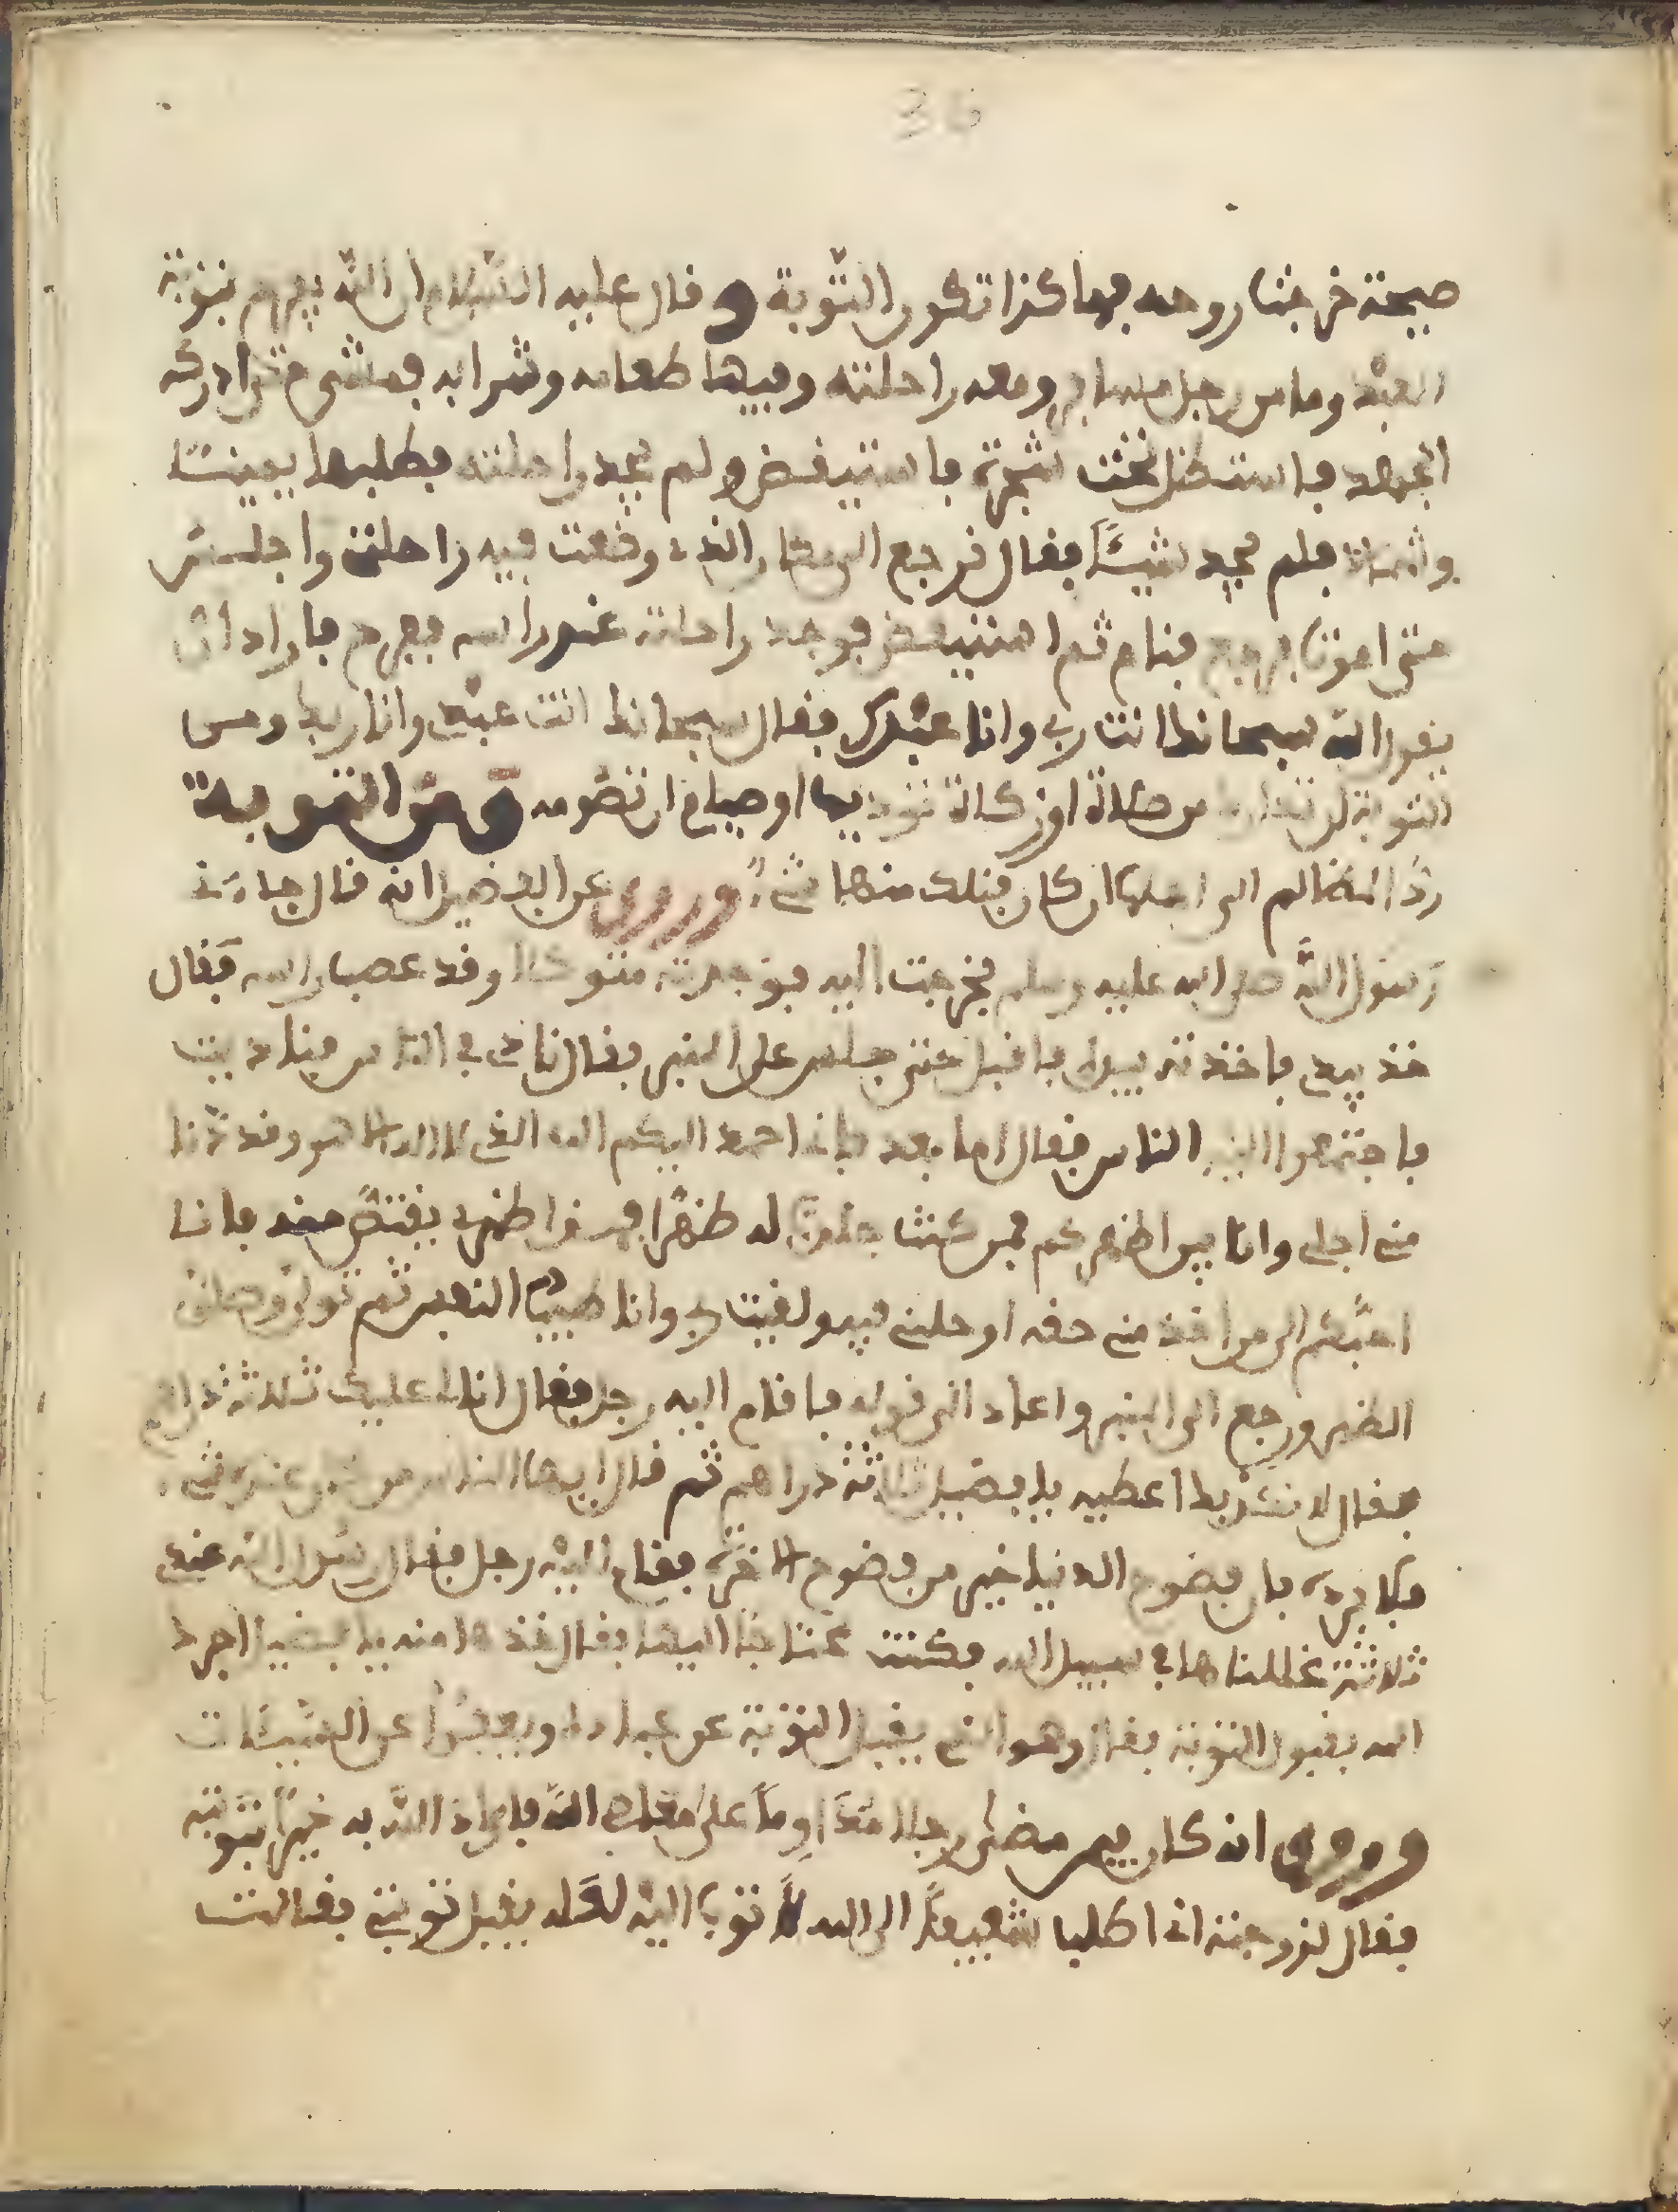 36
صيحة خرجت روحه فهاكذا تكون التوبة وقال عليه السلام ان الله يفرح بتوبة
العبد وما من رجل مسافر ومعه راحلته وفيها طعامه وشرابه فمشى حتى ادركه
الجهد فاستظل تحت شجرة فاستيقض ولم يجد راحلته فطلبها يمينا
وشمالا فلم يجد شيئا فقال نرجع الى مكان الذي وقعت فيه راحلتي واجلس
حتى اموت فرجع فنام ثم استيقض فوجد راحلته عند راسه ففرح فاراد ان
يقول الله سبحانك انت ربي وانا عبدك فقال سبحانك انت عبدي وانا ربك ومن
التوبة من صلاة او زكاة تؤديها او صيام ان تصومه ومن التوبة
رد المظالم الى اهلها ان كان قبلك منها شيء وروي عن الفضيل انه قال جاءني
رسول الله صلى الله عليه وسلم فخرجت اليه فوجدته وقد عصب راسه فقال
خذ بيدي فاخذته بيدي فاقبل حتى جلس على المنبر فقال نادي في الناس فناديت
فاجتمعوا اليه الناس فقال اما بعد فاني احمد اليكم الله الذي لا اله الا هو وقد دنا
مني اجلي وانا بين اظهركم فمن كنت جلدت له ظهرا فهذا ظهري يقتص منه فانا
احبكم الى من اخذ مني حقه او حللني فيه ولقيت ربي وانا طيب النفس ثم نزل وصلى
الظهر ورجع الى المنبر واعاد الى قوله فاقام اليه رجل فقال انا لي عليك ثلاثة دراهم
فقال لا نكذبك اعطيه يا فضيل ثلاثة دراهم ثم قال ايها الناس من عنده شيء
فان فضوح الدنيا خير من فضوح الاخرة فقام اليه رجل فقال رسول الله عندي
ثلاثة غللناها في سبيل الله فكنت محتاجا اليها فقال خذها منه يا فضيل
الله بقبول التوبة فقال وهو الذي يقبل التوبة عن عباده ويعفوا عن السيئات
وروي انه كان فيمن مضى رجلا على معاصي الله فاراد الله به خيرا بتوبته
فقال لزوجته اني اطلب شفيعا الى الله لاتوب اليه لعله يقبل توبتي فقالت